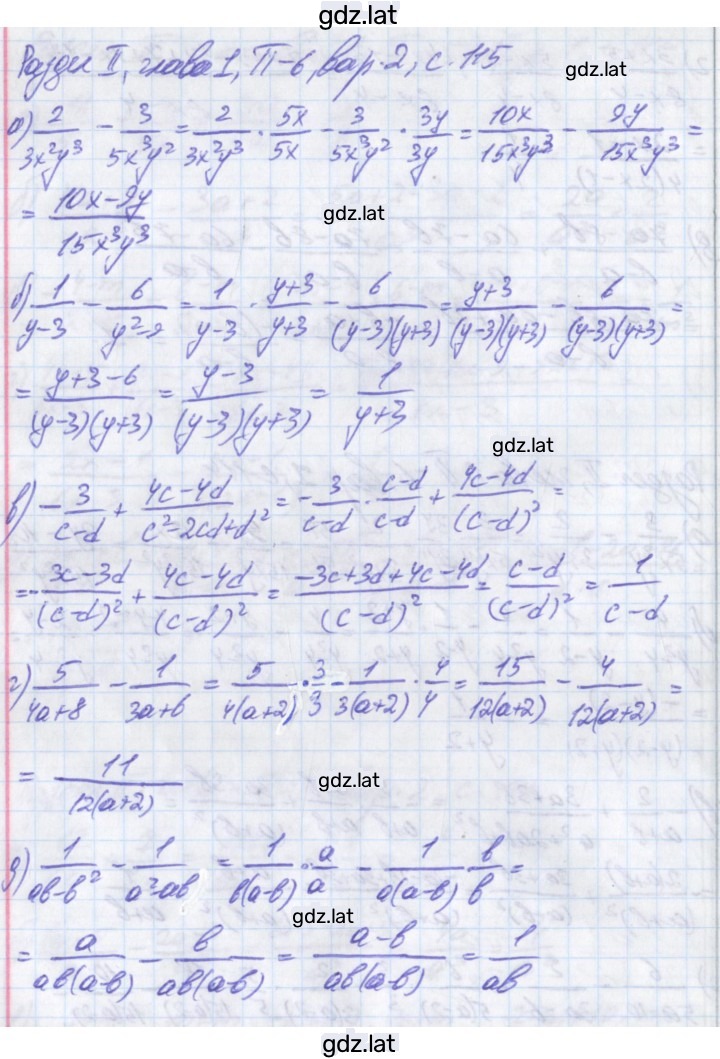 gdz.lat
Раздел II, глава 1, П-6, вар. 2, с. 115
gdz.lat
а) 2/(3x²y³) − 3/(5x³y²) = 2/(3x²y³) · 5x/5x − 3/(5x³y²) · 3y/3y = 10x/(15x³y³) − 9y/(15x³y³) =
= (10x−9y)/(15x³y³)
gdz.lat
б) 1/(y−3) − 6/(y²−9) = 1/(y−3) · (y+3)/(y+3) − 6/((y−3)(y+3)) = (y+3)/((y−3)(y+3)) − 6/((y−3)(y+3)) =
= (y+3−6)/((y−3)(y+3)) = (y−3)/((y−3)(y+3)) = 1/(y+3)
gdz.lat
в) −3/(c−d) + (4c−4d)/(c²−2cd+d²) = −3/(c−d) · (c−d)/(c−d) + (4c−4d)/(c−d)² =
= −(3c−3d)/(c−d)² + (4c−4d)/(c−d)² = (−3c+3d+4c−4d)/(c−d)² = (c−d)/(c−d)² = 1/(c−d)
г) 5/(4a+8) − 1/(3a+6) = 5/(4(a+2)) · 3/3 − 1/(3(a+2)) · 4/4 = 15/(12(a+2)) − 4/(12(a+2)) =
= 11/(12(a+2))
gdz.lat
д) 1/(ab−b²) − 1/(a²−ab) = 1/(b(a−b)) · a/a − 1/(a(a−b)) · b/b =
gdz.lat
= a/(ab(a−b)) − b/(ab(a−b)) = (a−b)/(ab(a−b)) = 1/(ab)
gdz.lat